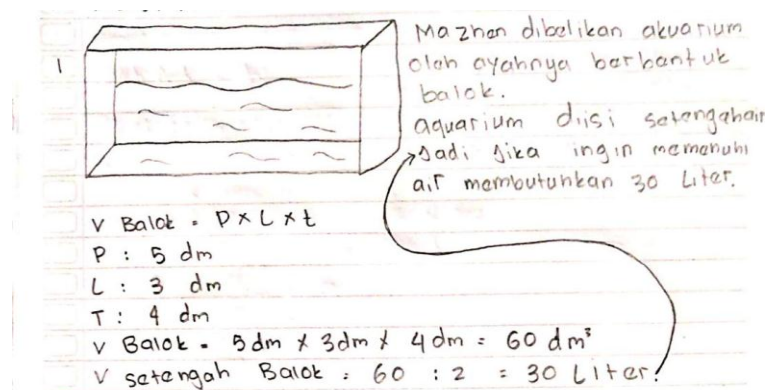 1
Mazhen dibelikan akuarium
oleh ayahnya berbentuk
balok.
aquarium diisi setengahair
Jadi Jika ingin memenuhi
air membutuhkan 30 Liter.
V Balok = P x L x t
P : 5 dm
L : 3 dm
T : 4 dm
V Balok = 5 dm x 3 dm x 4 dm = 60 dm³
V setengah Balok : 60 : 2 = 30 Liter.